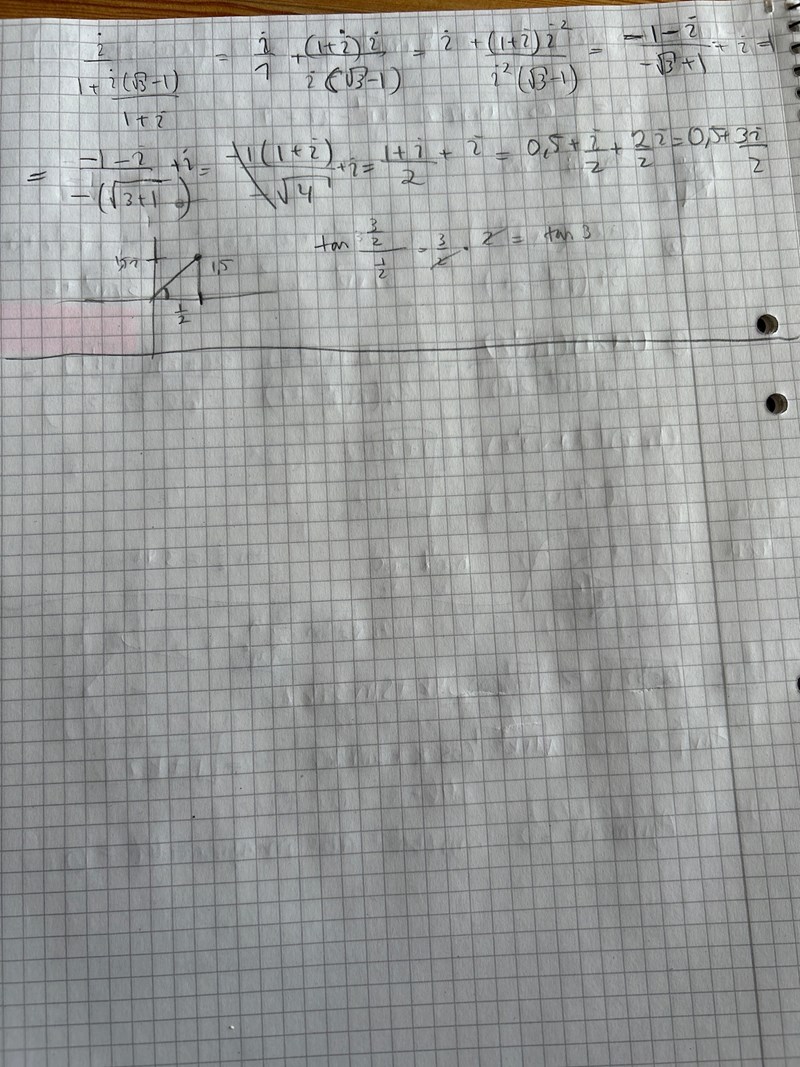 i / (1 + i(√3-1) / (1+i)) = i/1 + (1+i)i / i(√3-1) = i + (1+i)i² / i²(√3-1) = -1-i / -√3+1 + i =
= -1-i / -(√3+1) + i = -1(1+i) / -√4 + i = 1+i / 2 + i = 0,5 + i/2 + 2/2 i = 0,5 + 3i/2
tan 3/2 / 1/2 = 3/2 · 2 = tan 3
1,5
1/2